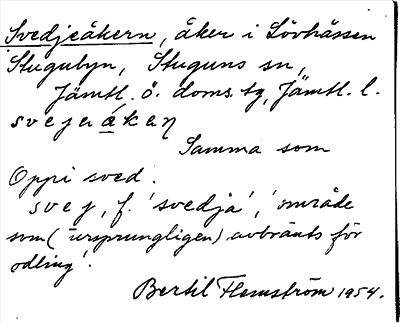 Svedjeåkern, åker i Lövhåssen
Stugubyn, Stuguns sn,
Jämtl. ö. doms. tg, Jämtl. l.
svejaåkeɳ
Samma som
Oppi sved.
svej, f. 'svedja', 'område
som (ursprungligen) avbränts för
odling'.
Bertil Flemström 1954.